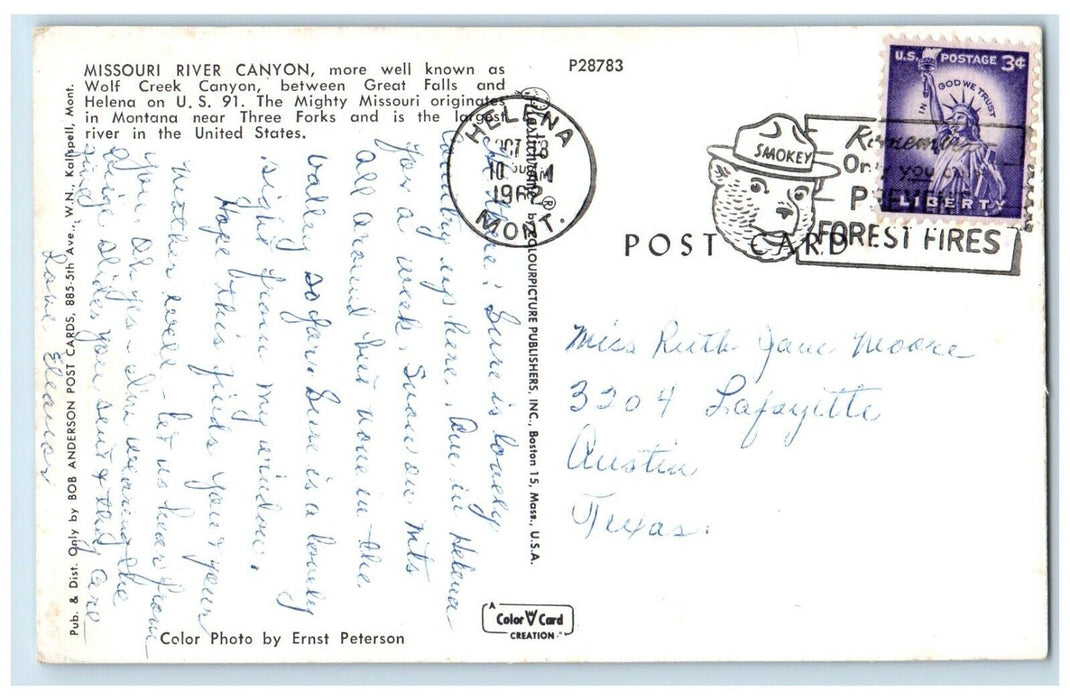 MISSOURI RIVER CANYON, more well known as
Wolf Creek Canyon, between Great Falls and
Helena on U. S. 91. The Mighty Missouri originates
in Montana near Three Forks and is the largest
river in the United States.
P28783
HELENA
OCT 18
10 AM
1962
MONT.
SMOKEY
Remember
Only you can
PREVENT
FOREST FIRES
U.S. POSTAGE 3¢
IN GOD WE TRUST
LIBERTY
POST CARD
Pub. & Dist. Only by BOB ANDERSON POST CARDS, 885-5th Ave., W.N., Kalispell, Mont.
Plastichrome ® by COLOURPICTURE PUBLISHERS, INC., Boston 15, Mass., U.S.A.
Hi There! Sure is lovely
country up here. Am in Helena
for a week. Snow on Mts
all around but none in the
valley so far. Sure is a lovely
sight from my window.
Hope this finds you & your
Mother well - let us hear from
you. Oh yes - I'm wearing the
beige slides you sent & they are
Love Eleanor
Miss Ruth Jane Moore
3204 Lafayette
Austin
Texas.
A
Color Card
CREATION
Color Photo by Ernst Peterson